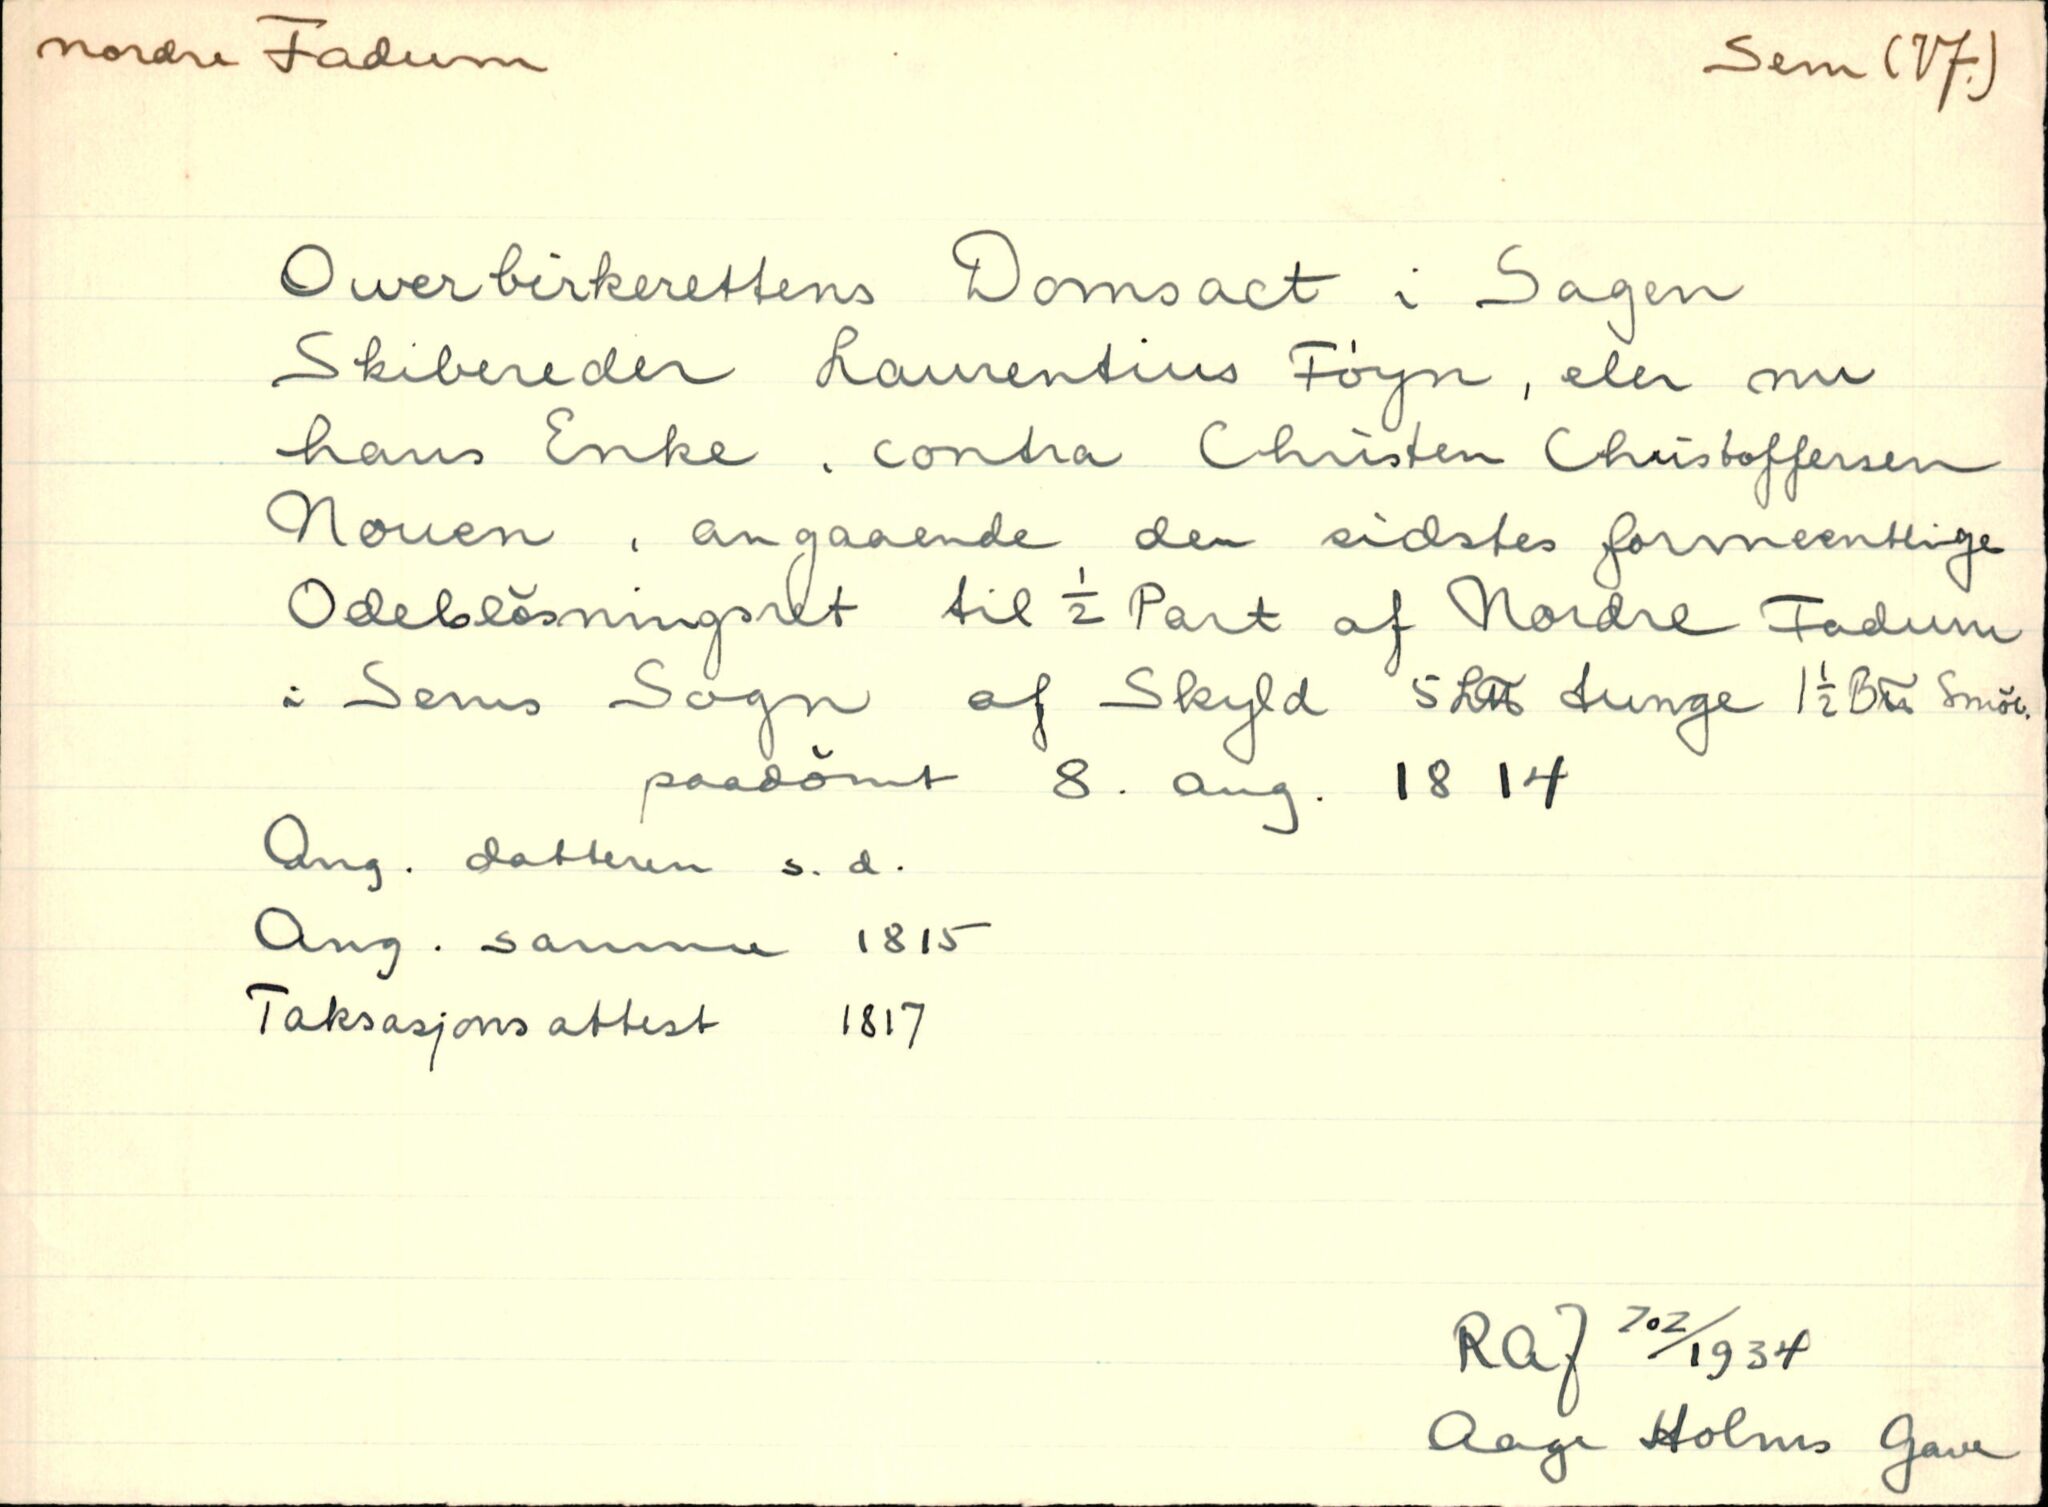 nordre Fadum
Sem (Vf.)
Owerbirkerettens Domsact i Sagen
Skibereder Laurentius Föyn, eler nu
hans Enke, contra Christen Christoffersen
Nouen, angaaende den sidstes formeentlige
Odelslösningsret til ½ Part af Nordre Fadum
i Sems Sogn af Skyld 5 L℔ tunge 1½ B℔ Smör.
paadömt 8. aug. 1814
Ang. datteren s. d.
Ang. samme 1815
Taksasjonsattest 1817
RAJ 202/1934
Aage Holms Gave